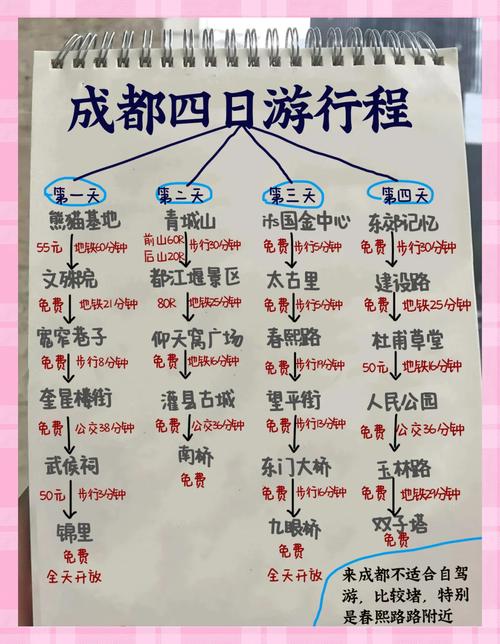 成都四日游行程
第一天
熊猫基地
55元 地铁60分钟
文殊院
免费 地铁21分钟
宽窄巷子
免费 步行8分钟
奎星楼街
免费 公交38分钟
武侯祠
50元 步行3分钟
锦里
免费
全天开放
第二天
青城山
前山60R 步行30分钟
后山20R
都江堰景区
80R 地铁25分钟
仰天窝广场
免费 地铁16分钟
灌县古城
免费 公交36分钟
南桥
免费
第三天
ifs国金中心
免费 步行5分钟
太古里
免费 步行5分钟
春熙路
免费 步行19分钟
望平街
免费 步行13分钟
东门大桥
免费 步行16分钟
九眼桥
免费
全天开放
第四天
东郊记忆
免费 步行30分钟
建设路
免费 地铁25分钟
杜甫草堂
50元 地铁16分钟
人民公园
免费 公交36分钟
玉林路
免费 地铁29分钟
双子塔
免费
来成都不适合自驾
游，比较堵，特别
是春熙路路附近